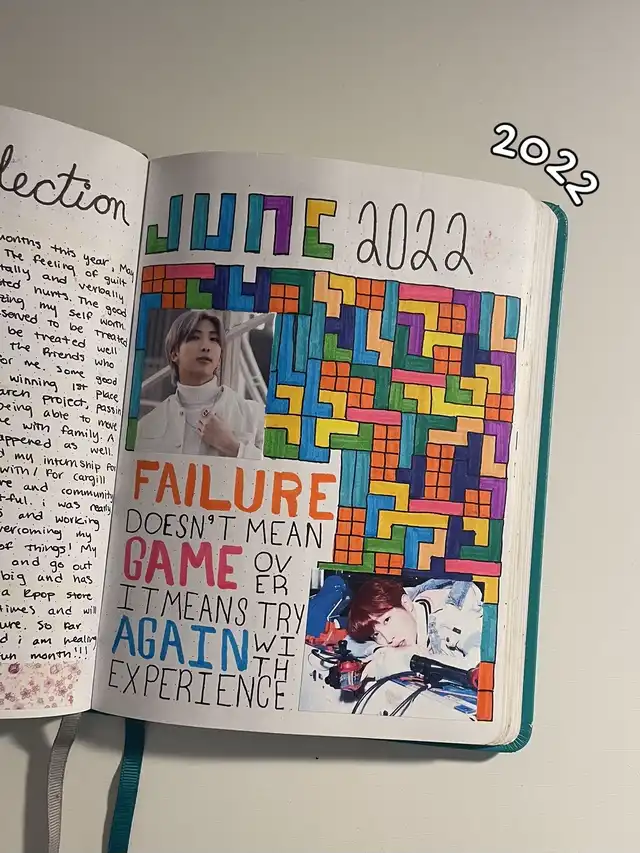 lection
months this year, May
The feeling of guilt
tally and verbally
ted hurts. The good
zing my self worth
served to be treated
be treated well
the friends who
for me. Some good
winning 1st place
arch project, passin
being able to move
e with family. A
appened as well.
d my internship for
with/for cargill
re and community
tful. I was really
s and working
vercoming my
of things! My
and go out
big and has
a Kpop store
times and will
ure. So far
d i am healing
fun month!!!
JUNE 2022
FAILURE
DOESN'T MEAN
GAME OVER
IT MEANS TRY
AGAIN WITH
EXPERIENCE
2022